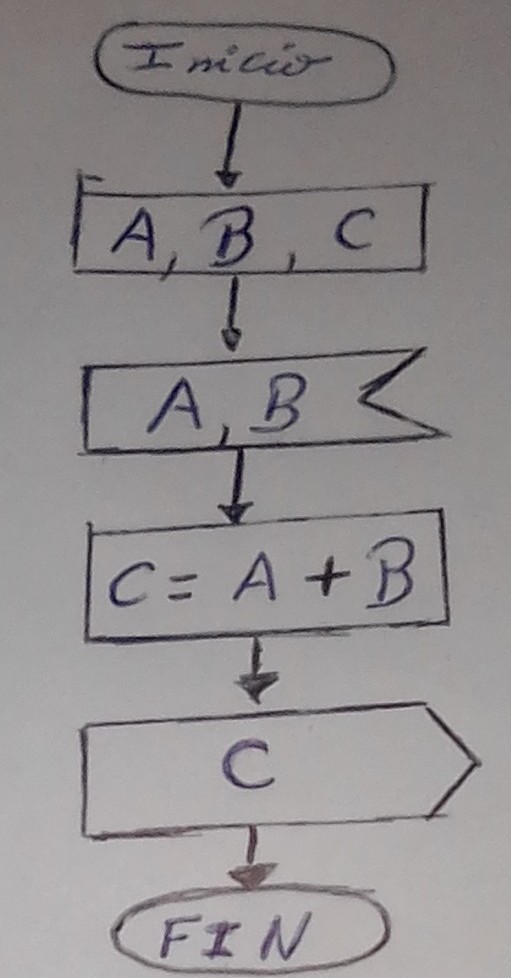 Inicio
A, B, C
A, B
C = A + B
C
FIN